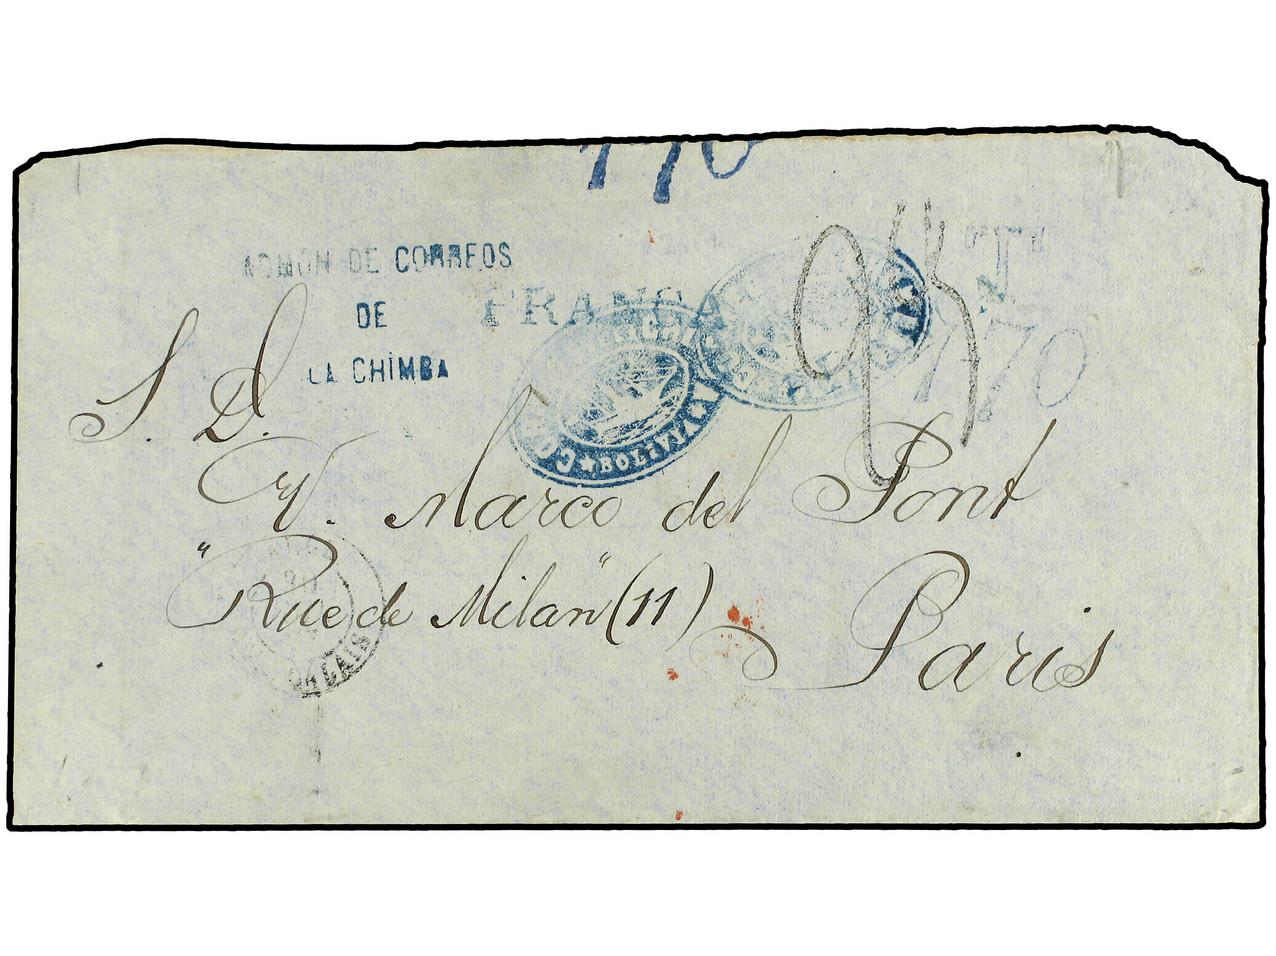 770
ADMON DE CORREOS
DE
LA CHIMBA
FRANCA
"T"
770
BOLIVIA
S. D.
V. Marco del Pont
"Rue de Milan" (11)
Paris
CALAIS